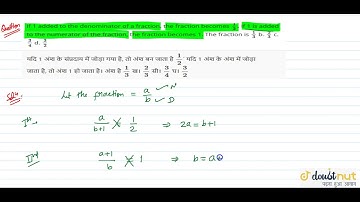 Question
If 1 added to the denominator of a fraction, the fraction becomes 1/2. If 1 is added
to the numerator of the fraction, the fraction becomes 1. The fraction is
यदि 1 अंश के संप्रदाय में जोड़ा गया है, तो अंश बन जाता है 1/2. यदि 1 अंश के अंश में जोड़ा
जाता है, तो अंश 1 हो जाता है। अंश है 1/3 ख। 2/3 सी। 3/4 घ। 3/2
Solu.
Let the fraction = a/b N D
Ist → a/(b+1) = 1/2 ⇒ 2a = b+1
IInd → (a+1)/b = 1 ⇒ b = a
doubtnut